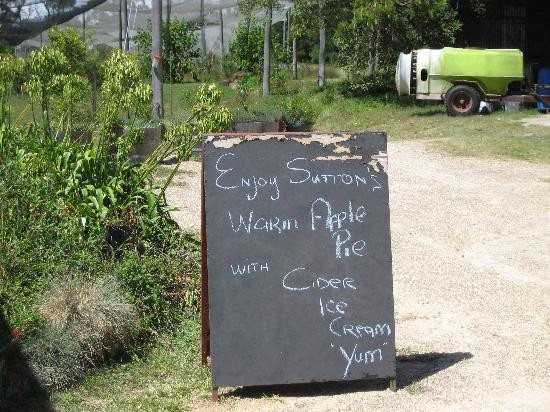 Enjoy Sutton's
Warm Apple
Pie
with Cider
Ice
Cream
"Yum"